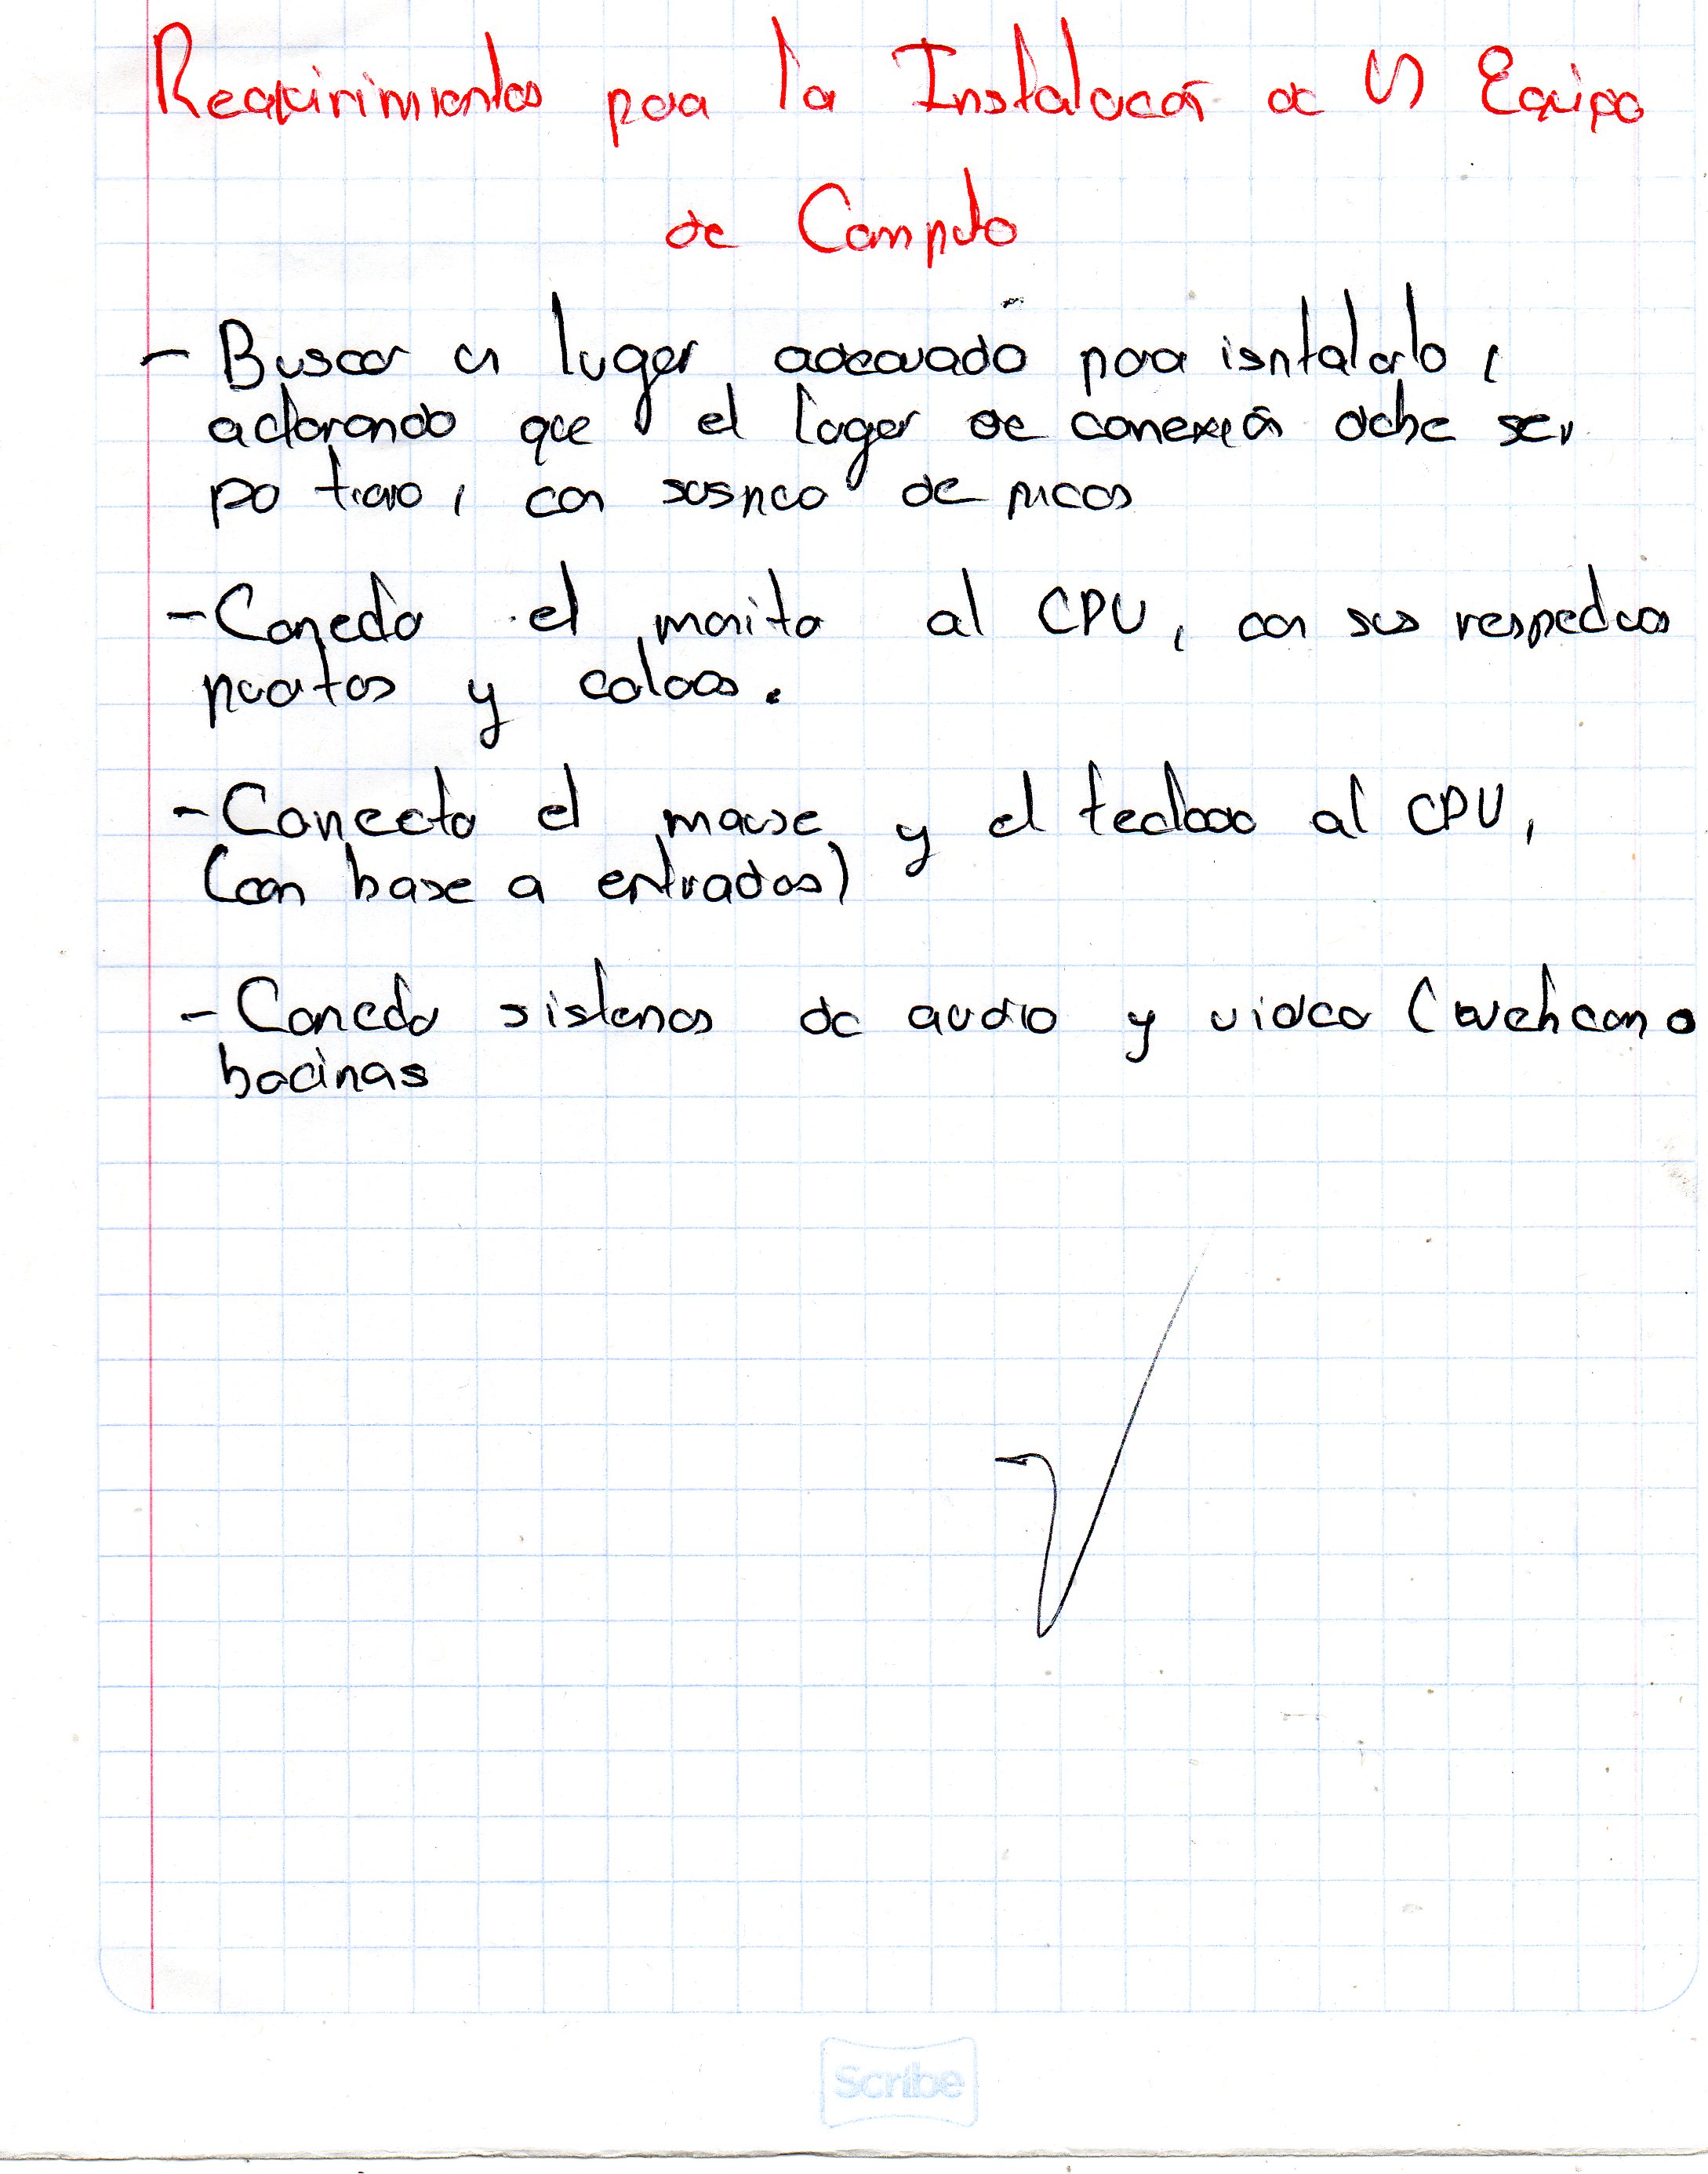 Requirimientos para la Instalacón de Un Equipo
de Computo
- Buscar un lugar adecuado para isntalarlo,
aclarando que el lugar de conexión debe ser
con de picos
- Conecto el monitor al CPU, con sus respectivos
puertos y colores.
- Conecto el mouse y el teclado al CPU,
(con base a entradas)
- Conecto sistemas de audio y video (webcam o
bocinas
Scribe